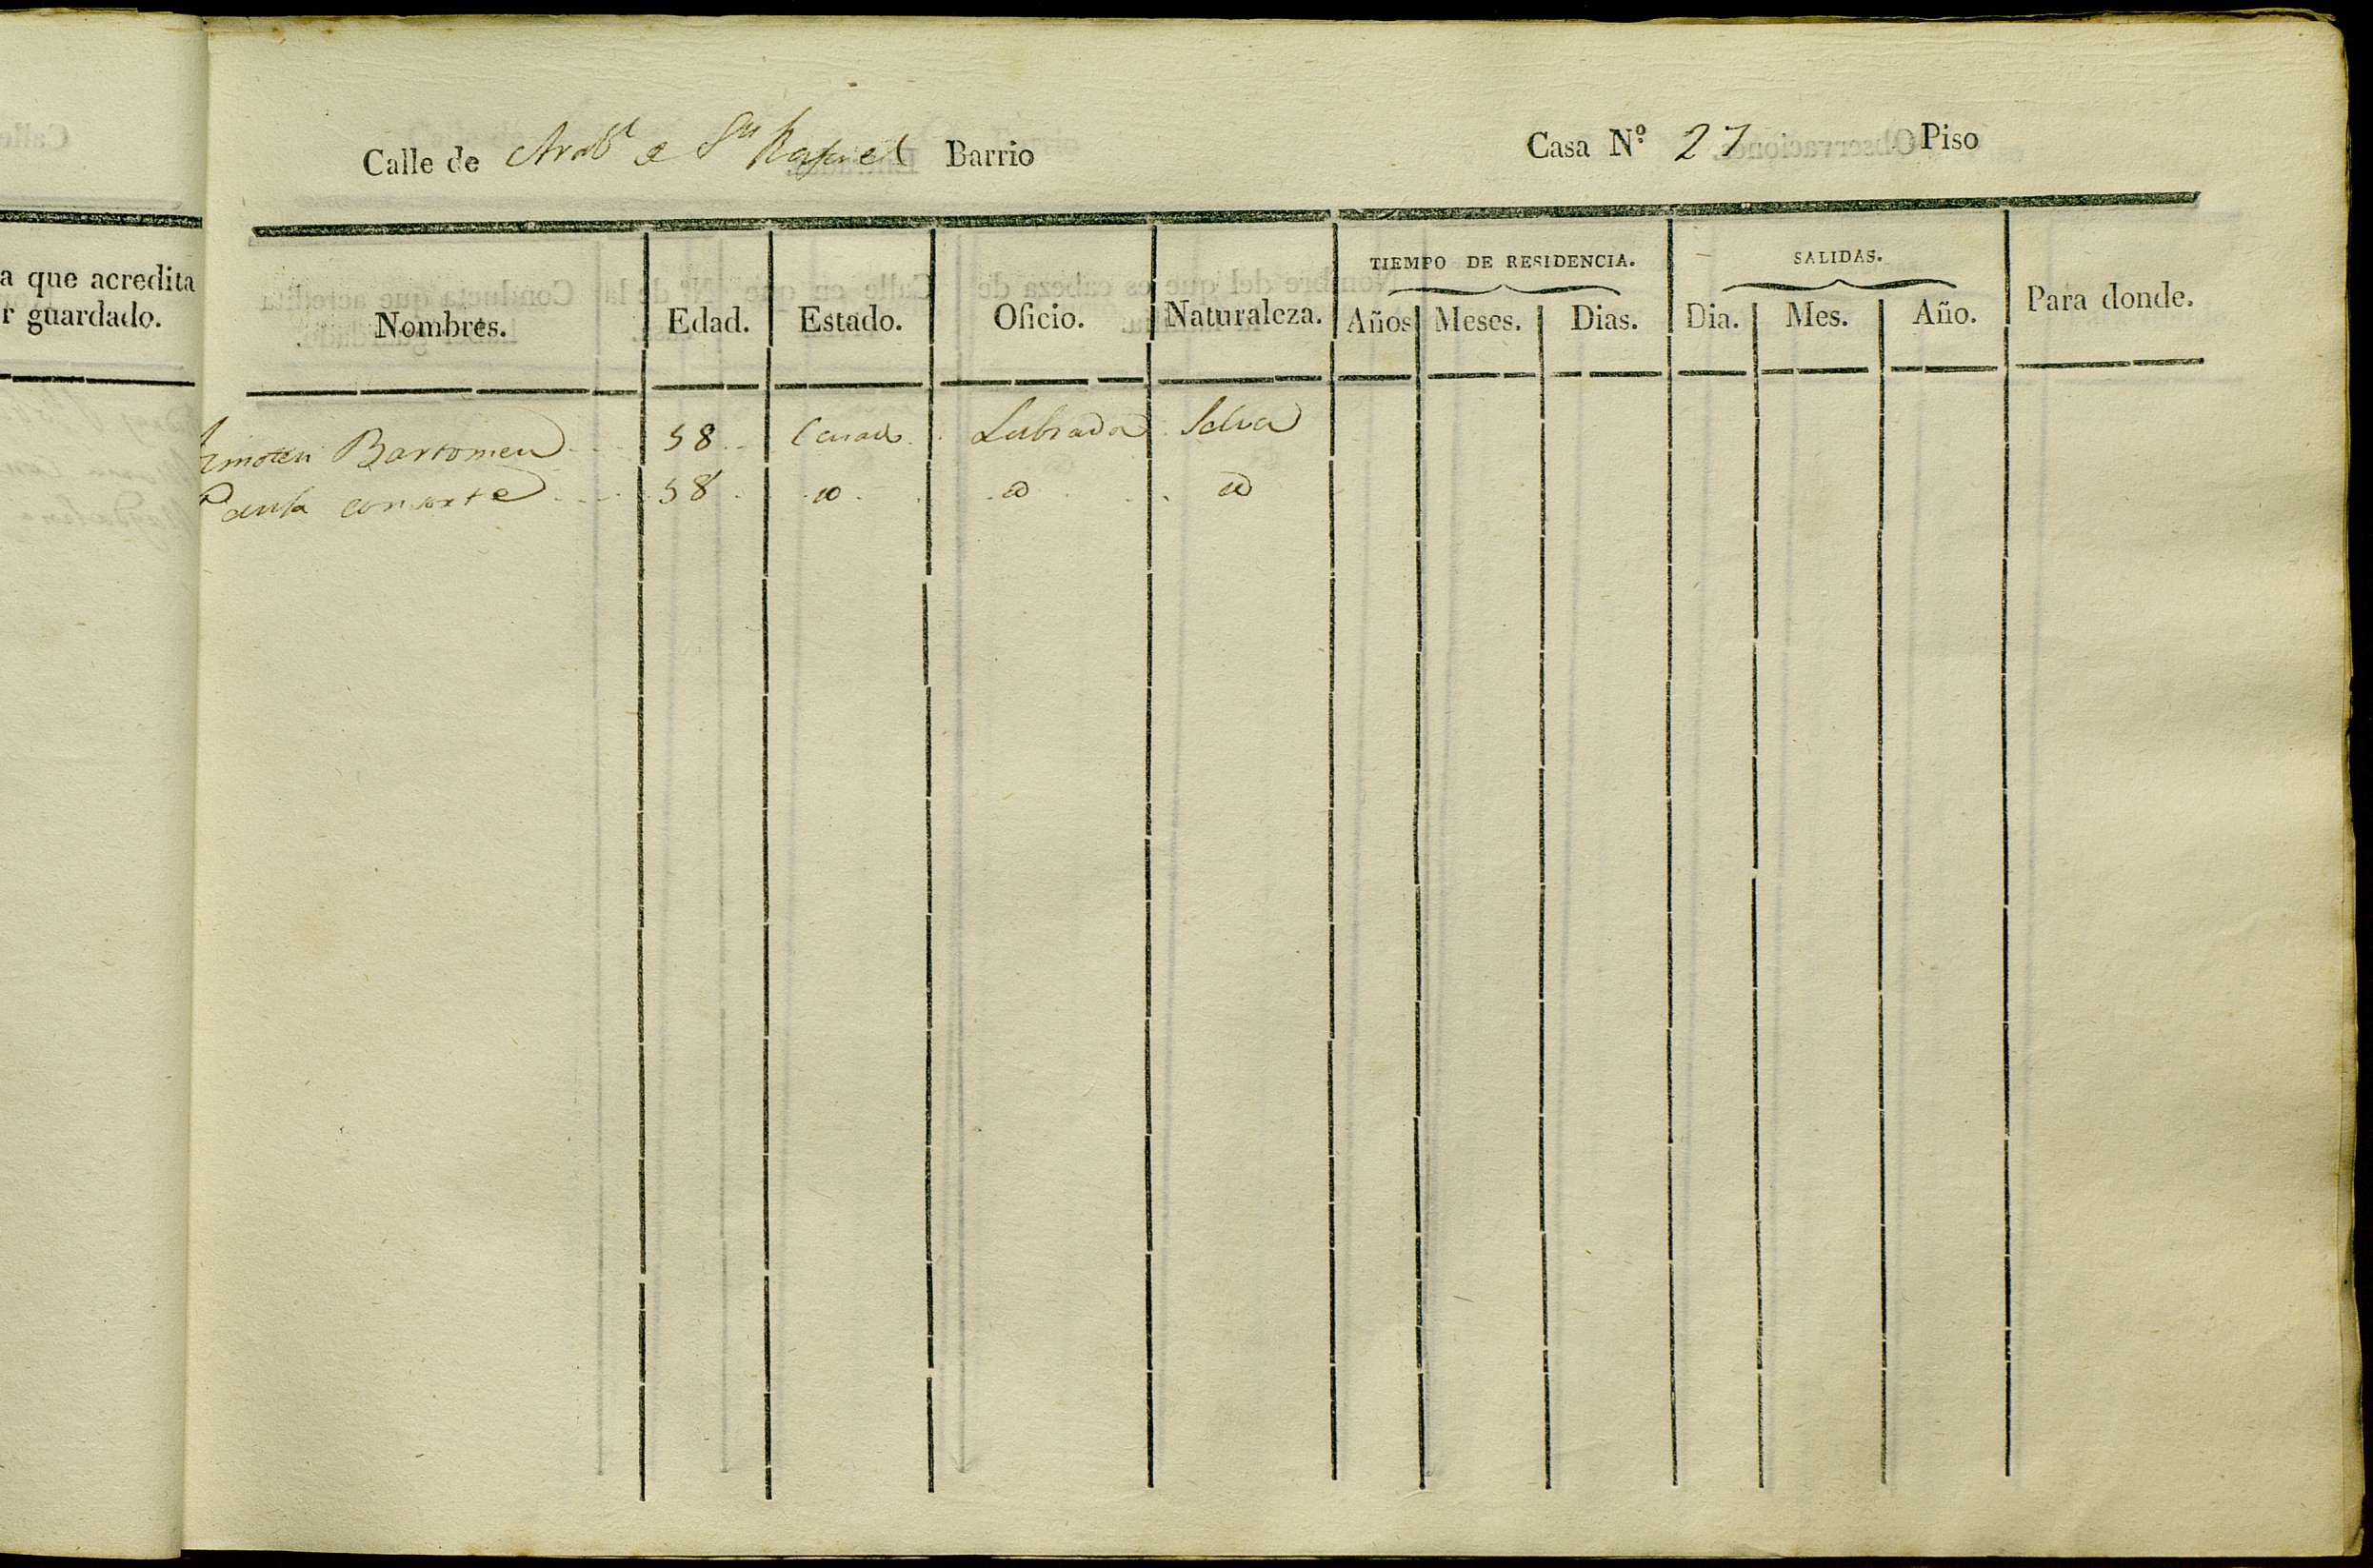 Calle de Arabl e Sn Rafael Barrio Casa N.º 27 Piso
a que acredita
r guardado.
TIEMPO DE RESIDENCIA. SALIDAS.
Nombres. Edad. Estado. Oficio. Naturaleza. Años Meses. Dias. Dia. Mes. Año. Para donde.
Timoteu Bartomeu 58 Casado Labrador Selva
Paula consorte 58 @ @ @